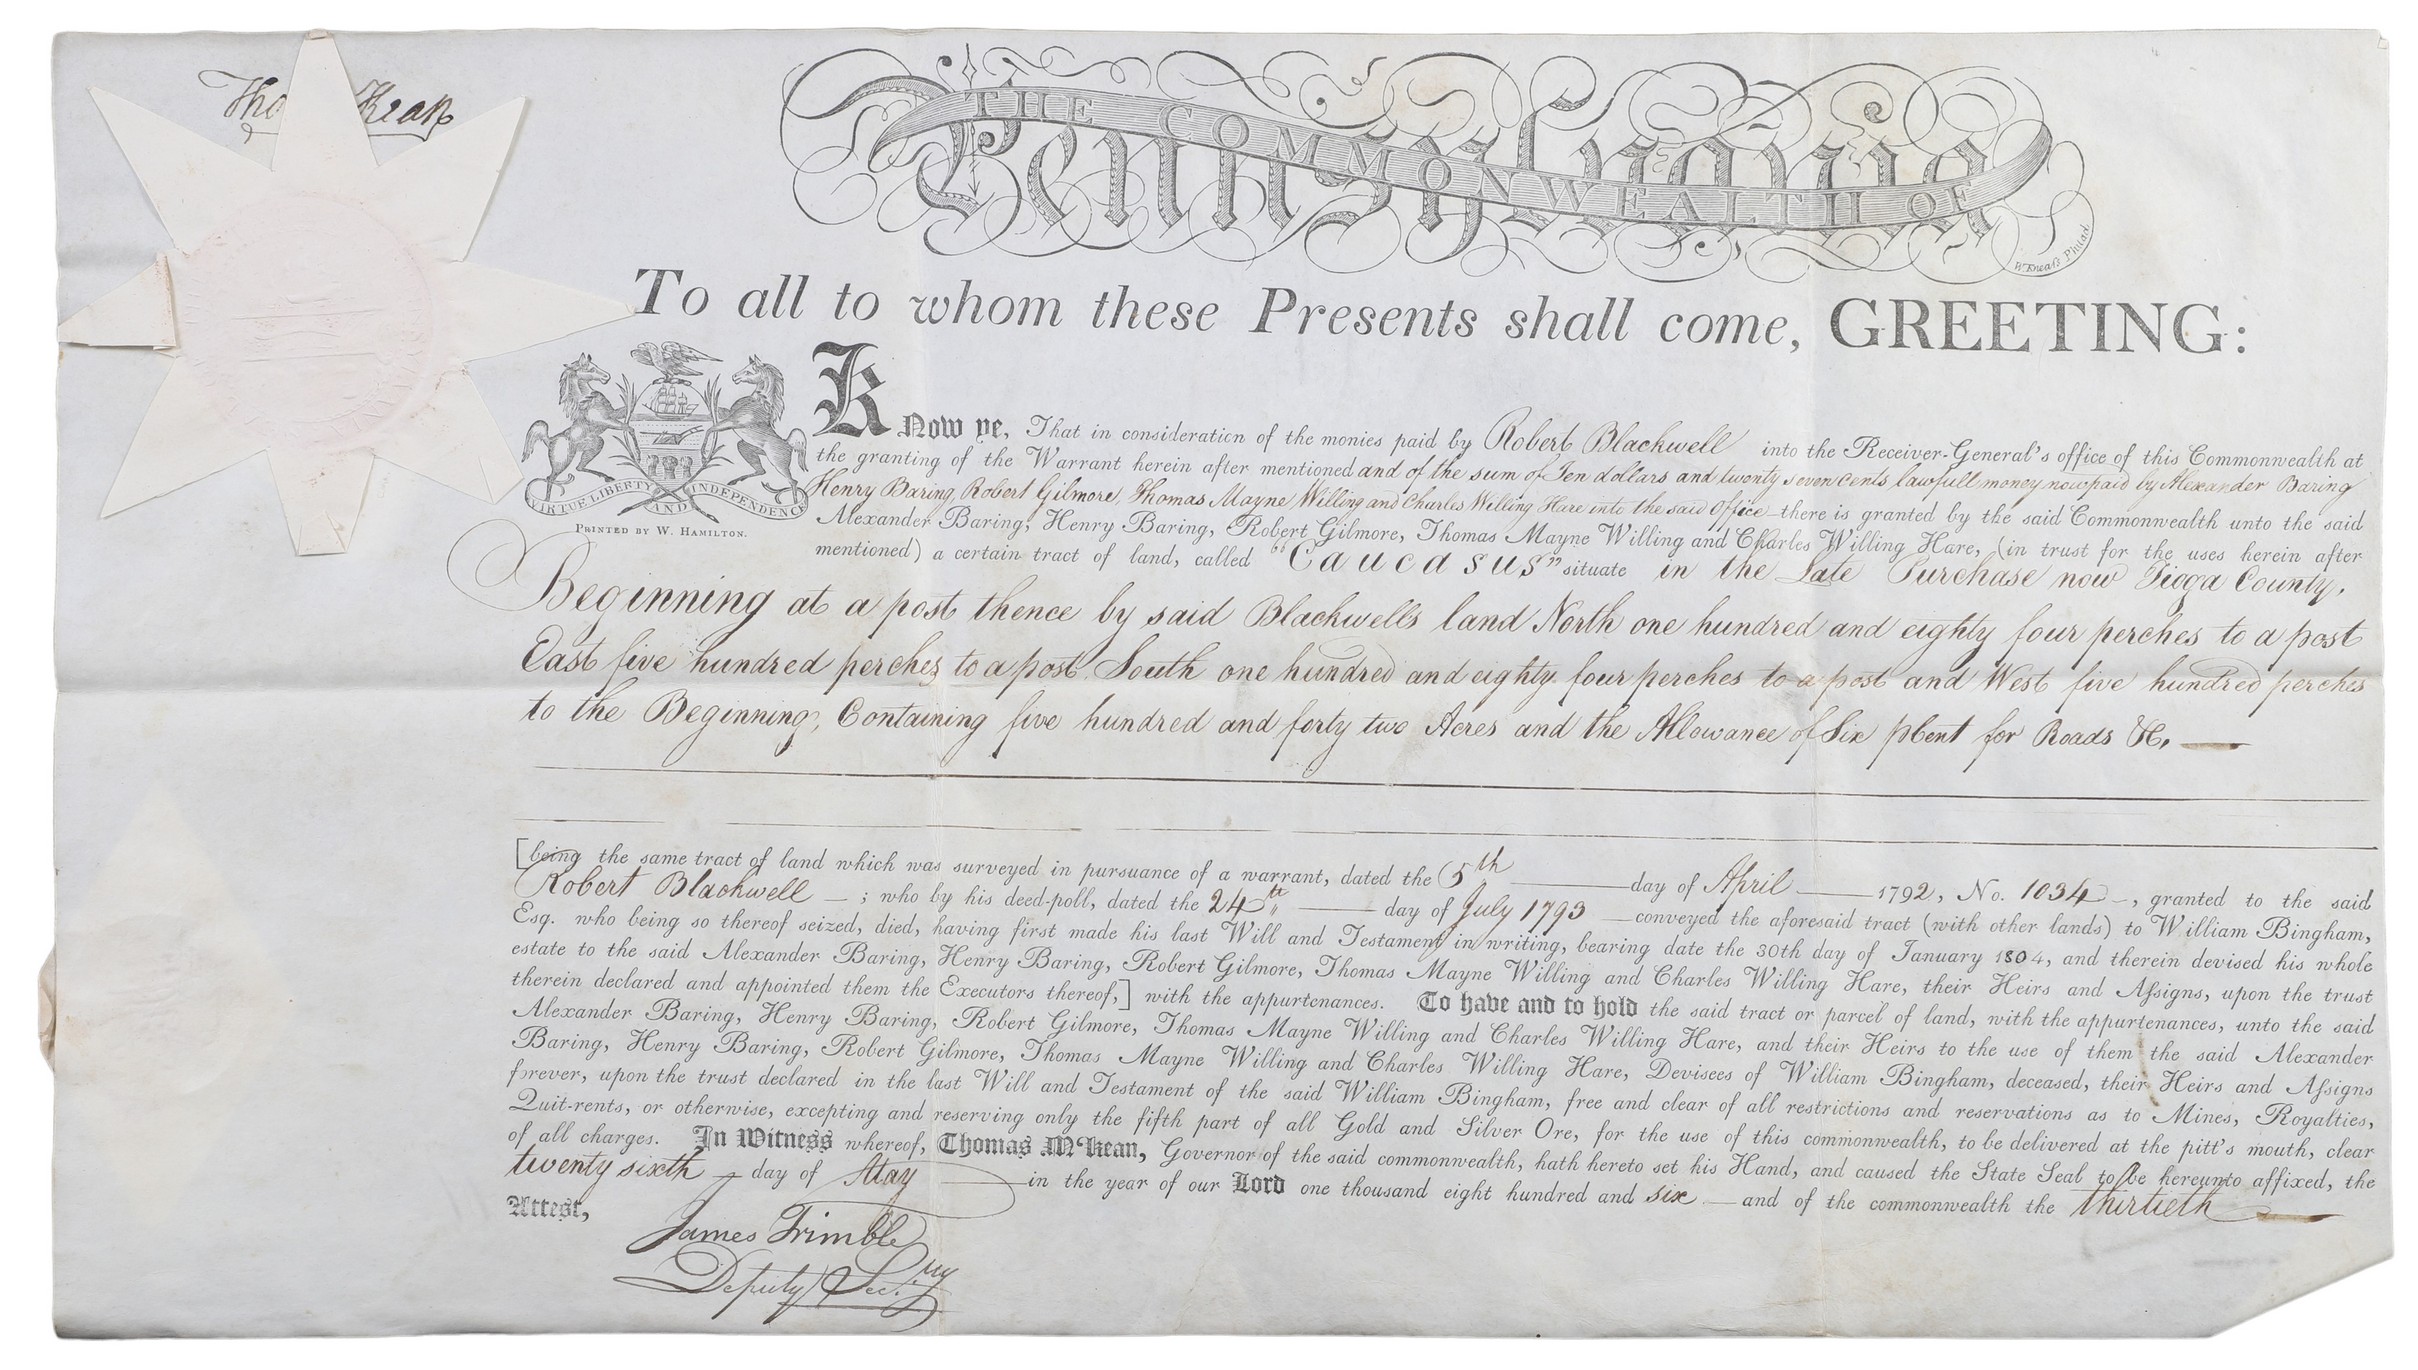 Tho Kean
THE COMMONWEALTH OF
Pennsylvania
W. Kneass Philad
To all to whom these Presents shall come, GREETING:
VIRTUE LIBERTY AND INDEPENDENCE
PRINTED BY W. HAMILTON.
KNow ye, That in consideration of the monies paid by Robert Blackwell into the Receiver-General's office of this Commonwealth at
the granting of the Warrant herein after mentioned and of the sum of Ten dollars and twenty seven cents lawfull money now paid by Alexander Baring
Henry Baring, Robert Gilmore, Thomas Mayne Willing and Charles Willing Hare into the said Office there is granted by the said Commonwealth unto the said
Alexander Baring, Henry Baring, Robert Gilmore, Thomas Mayne Willing and Charles Willing Hare, (in trust for the uses herein after
mentioned) a certain tract of land, called "Caucasus" situate in the Late Purchase now Tioga County,
Beginning at a post thence by said Blackwells land North one hundred and eighty four perches to a post
East five hundred perches to a post South one hundred and eighty four perches to a post and West five hundred perches
to the Beginning, Containing five hundred and forty two Acres and the Allowance of Six pCent for Roads &c.
[being the same tract of land which was surveyed in pursuance of a warrant, dated the 5th day of April 1792, No. 1034, granted to the said
Robert Blackwell ; who by his deed-poll, dated the 24th day of July 1793 conveyed the aforesaid tract (with other lands) to William Bingham,
Esq. who being so thereof seized, died, having first made his last Will and Testament in writing, bearing date the 30th day of January 1804, and therein devised his whole
estate to the said Alexander Baring, Henry Baring, Robert Gilmore, Thomas Mayne Willing and Charles Willing Hare, their Heirs and Assigns, upon the trust
therein declared and appointed them the Executors thereof,] with the appurtenances. To have and to hold the said tract or parcel of land, with the appurtenances, unto the said
Alexander Baring, Henry Baring, Robert Gilmore, Thomas Mayne Willing and Charles Willing Hare, and their Heirs to the use of them the said Alexander
Baring, Henry Baring, Robert Gilmore, Thomas Mayne Willing and Charles Willing Hare, Devisees of William Bingham, deceased, their Heirs and Assigns
forever, upon the trust declared in the last Will and Testament of the said William Bingham, free and clear of all restrictions and reservations as to Mines, Royalties,
Quit-rents, or otherwise, excepting and reserving only the fifth part of all Gold and Silver Ore, for the use of this commonwealth, to be delivered at the pitt's mouth, clear
of all charges. In Witness whereof, Thomas M'Kean, Governor of the said commonwealth, hath hereto set his Hand, and caused the State Seal to be hereunto affixed, the
twenty sixth day of May in the year of our Lord one thousand eight hundred and six and of the commonwealth the thirtieth
Attest,
James Trimble
Deputy Sec.ry